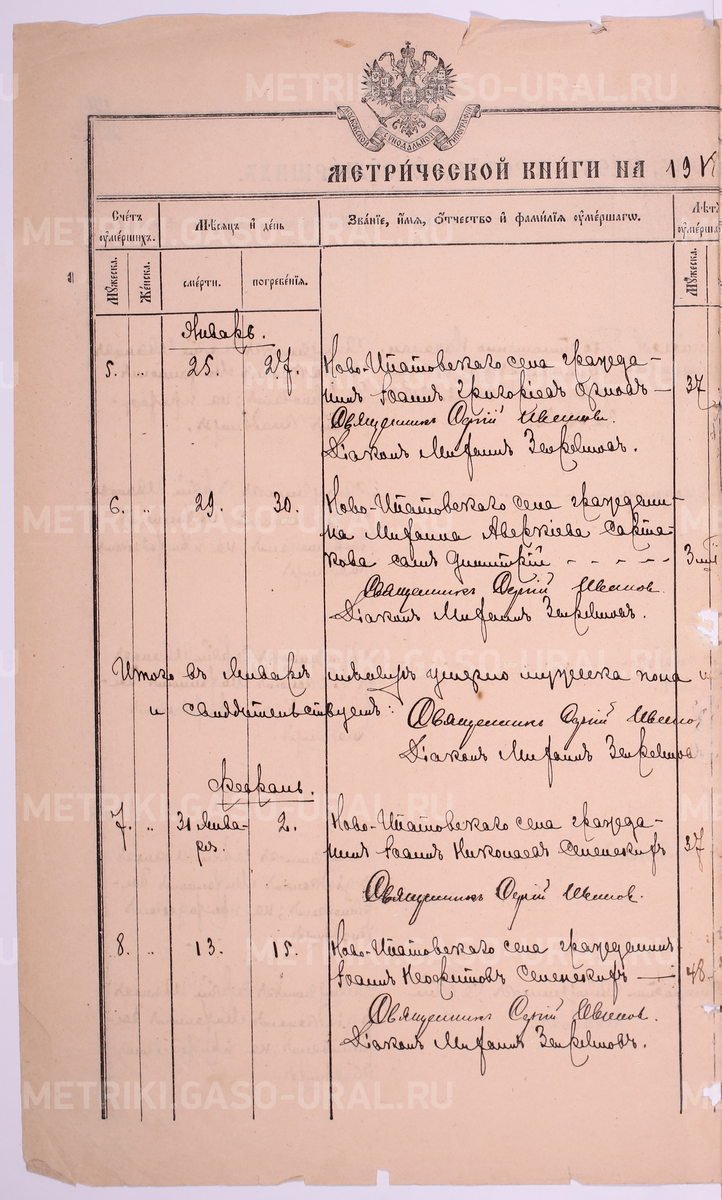 МЕТРИ́ЧЕСКОЙ КНИ́ГИ НА 19
Счетъ ѹме́ршихъ.
Мѣ́сяцъ и҆ де́нь
Зва́нїе, и҆́мя, ѻ҆́тчество и҆ фами́лїя ѹме́ршагѡ.
Лѣтъ
Мꙋжеска.
Же́нска.
сме́рти.
погребе́нїя.
Мꙋжеска.
Январь.
5. „ 25. 27. Ново-Ипатовскаго села гражда-
нинъ Іоаннъ Григоріевъ — 37
Священникъ Сергій Ивановъ.
Діаконъ Михаилъ
6. „ 29. 30. Ново-Ипатовскаго села граждани-
на Михаила Аверкіева Сарта-
кова сынъ Димитрій - - - - - 3
Священникъ Сергій Ивановъ.
Діаконъ Михаилъ
Итого въ Январѣ мѣсяцѣ умерло мужеска пола
и свидѣтельствуемъ: Священникъ Сергій Иванов
Діаконъ Михаилъ
Февраль.
7. „ 31 Янва- 2. Ново-Ипатовскаго села гражда-
ря. нинъ Іоаннъ Николаевъ 37
Священникъ Сергій Ивановъ.
8. „ 13. 15. Ново-Ипатовскаго села гражданинъ
Іоаннъ Неофитовъ — 48
Священникъ Сергій Ивановъ.
Діаконъ Михаилъ
METRIKI.GASO-URAL.RU